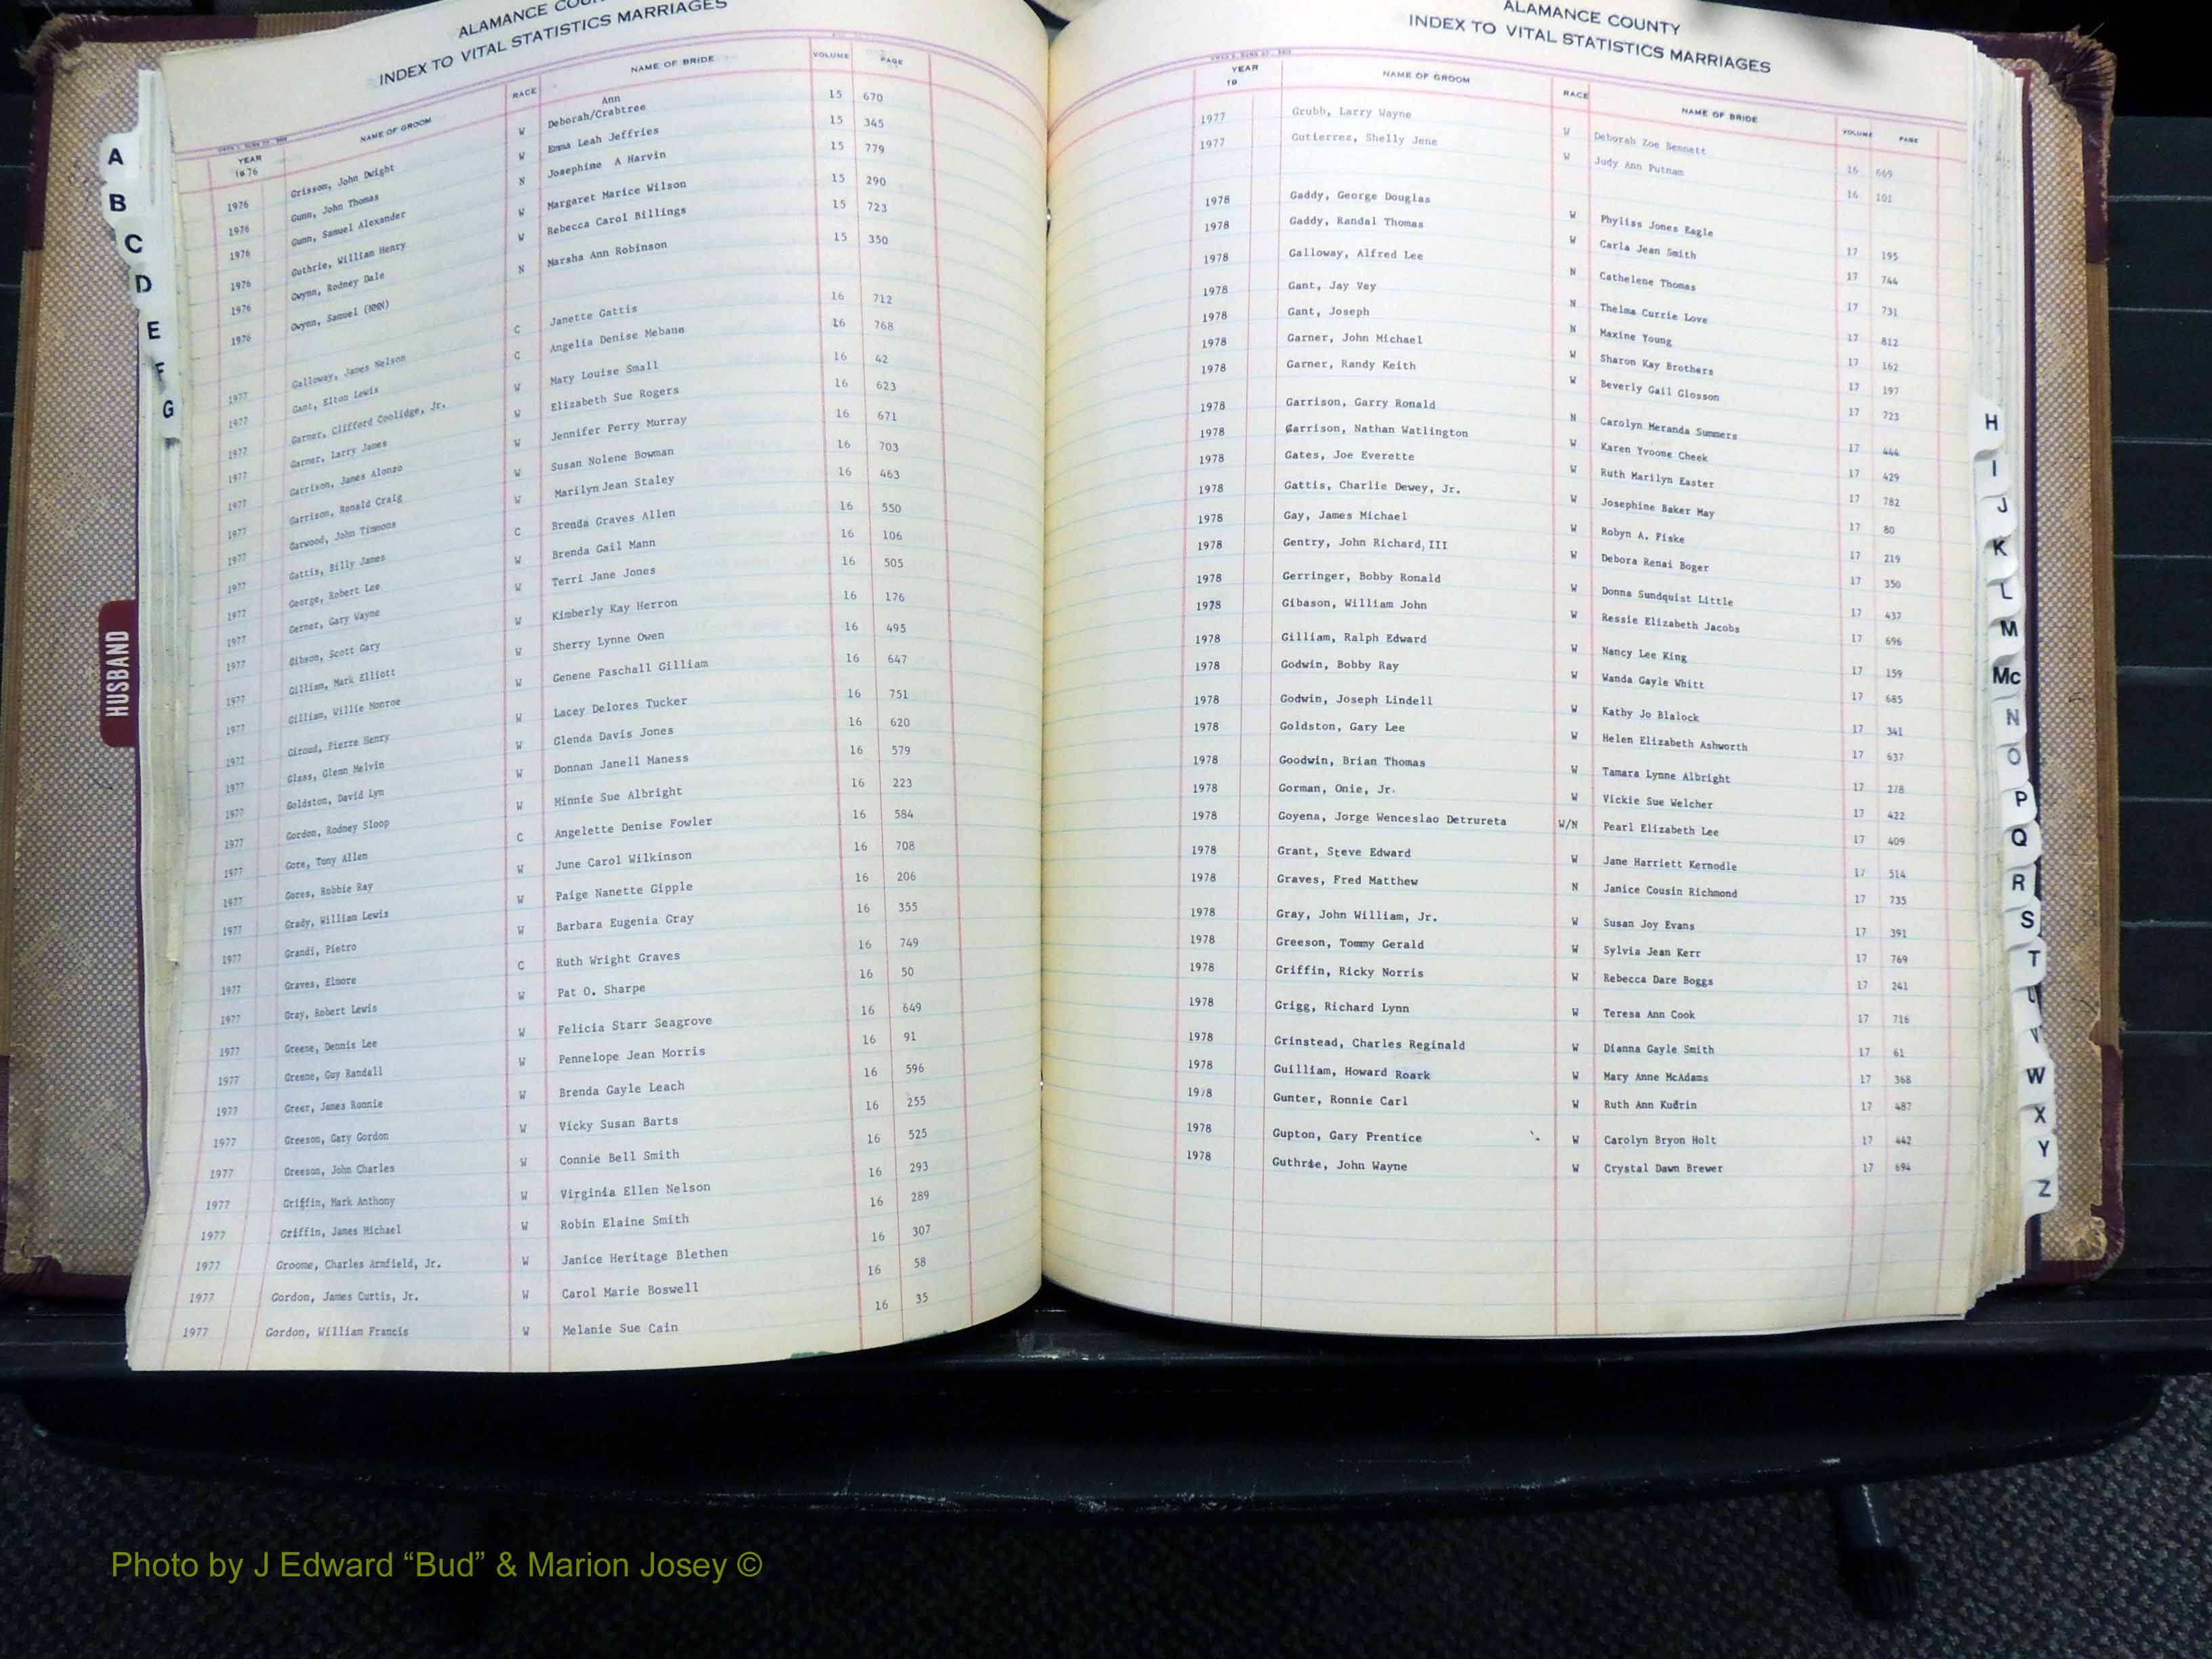 ALAMANCE
INDEX TO VITAL STATISTICS MARRIAGES
YEAR 1976 NAME OF GROOM RACE NAME OF BRIDE VOLUME PAGE
1976 Grissom, John Dwight W Deborah/Crabtree Ann 15 670
1976 Gunn, John Thomas W Emma Leah Jeffries 15 345
1976 Gunn, Samuel Alexander N Josephine A Harvin 15 779
1976 Guthrie, William Henry W Margaret Marice Wilson 15 290
1976 Gwynn, Rodney Dale W Rebecca Carol Billings 15 723
1976 Gwynn, Samuel (NMN) N Marsha Ann Robinson 15 350
1977 Galloway, James Nelson C Janette Gattis 16 712
1977 Gant, Elton Lewis C Angelia Denise Mebane 16 768
1977 Garner, Clifford Coolidge, Jr. W Mary Louise Small 16 42
1977 Garner, Larry James W Elizabeth Sue Rogers 16 623
1977 Garrison, James Alonzo W Jennifer Perry Murray 16 671
1977 Garrison, Ronald Craig W Susan Nolene Bowman 16 703
1977 Garwood, John Timmons W Marilyn Jean Staley 16 463
1977 Gattis, Billy James C Brenda Graves Allen 16 550
1977 George, Robert Lee W Brenda Gail Mann 16 106
1977 Gerner, Gary Wayne W Terri Jane Jones 16 505
1977 Gibson, Scott Gary W Kimberly Kay Herron 16 176
1977 Gilliam, Mark Elliott W Sherry Lynne Owen 16 495
1977 Gilliam, Willie Monroe W Genene Paschall Gilliam 16 647
1977 Giroud, Pierre Henry W Lacey Delores Tucker 16 751
1977 Glass, Glenn Melvin W Glenda Davis Jones 16 620
1977 Goldston, David Lyn W Donnan Janell Maness 16 579
1977 Gordon, Rodney Sloop W Minnie Sue Albright 16 223
1977 Gore, Tony Allen C Angelette Denise Fowler 16 584
1977 Gores, Robbie Ray W June Carol Wilkinson 16 708
1977 Grady, William Lewis W Paige Nanette Gipple 16 206
1977 Grandi, Pietro W Barbara Eugenia Gray 16 355
1977 Graves, Elmore C Ruth Wright Graves 16 749
1977 Gray, Robert Lewis W Pat O. Sharpe 16 50
1977 Greene, Dennis Lee W Felicia Starr Seagrove 16 649
1977 Greene, Guy Randall W Pennelope Jean Morris 16 91
1977 Greer, James Ronnie W Brenda Gayle Leach 16 596
1977 Greeson, Gary Gordon W Vicky Susan Barts 16 255
1977 Greeson, John Charles W Connie Bell Smith 16 525
1977 Griffin, Mark Anthony W Virginia Ellen Nelson 16 293
1977 Griffin, James Michael W Robin Elaine Smith 16 289
1977 Groome, Charles Armfield, Jr. W Janice Heritage Blethen 16 307
1977 Gordon, James Curtis, Jr. W Carol Marie Boswell 16 58
1977 Gordon, William Francis W Melanie Sue Cain 16 35
A
B
C
D
E
F
G
HUSBAND
ALAMANCE COUNTY
INDEX TO VITAL STATISTICS MARRIAGES
YEAR 19 NAME OF GROOM RACE NAME OF BRIDE VOLUME PAGE
1977 Grubh, Larry Wayne W Deborah Zoe Bennett 16 669
1977 Gutierrez, Shelly Jene W Judy Ann Putnam 16 101
1978 Gaddy, George Douglas W Phyliss Jones Eagle 17 195
1978 Gaddy, Randal Thomas W Carla Jean Smith 17 744
1978 Galloway, Alfred Lee N Cathelene Thomas 17 731
1978 Gant, Jay Vey N Thelma Currie Love 17 812
1978 Gant, Joseph N Maxine Young 17 162
1978 Garner, John Michael W Sharon Kay Brothers 17 197
1978 Garner, Randy Keith W Beverly Gail Glosson 17 723
1978 Garrison, Garry Ronald N Carolyn Meranda Summers 17 444
1978 Garrison, Nathan Watlington W Karen Yvoone Cheek 17 429
1978 Gates, Joe Everette W Ruth Marilyn Easter 17 782
1978 Gattis, Charlie Dewey, Jr. W Josephine Baker May 17 80
1978 Gay, James Michael W Robyn A. Fiske 17 219
1978 Gentry, John Richard, III W Debora Renai Boger 17 350
1978 Gerringer, Bobby Ronald W Donna Sundquist Little 17 437
1978 Gibason, William John W Ressie Elizabeth Jacobs 17 696
1978 Gilliam, Ralph Edward W Nancy Lee King 17 159
1978 Godwin, Bobby Ray W Wanda Gayle Whitt 17 685
1978 Godwin, Joseph Lindell W Kathy Jo Blalock 17 341
1978 Goldston, Gary Lee W Helen Elizabeth Ashworth 17 637
1978 Goodwin, Brian Thomas W Tamara Lynne Albright 17 278
1978 Gorman, Onie, Jr. W Vickie Sue Welcher 17 422
1978 Goyena, Jorge Wenceslao Detrureta W/N Pearl Elizabeth Lee 17 409
1978 Grant, Steve Edward W Jane Harriett Kernodle 17 514
1978 Graves, Fred Matthew N Janice Cousin Richmond 17 735
1978 Gray, John William, Jr. W Susan Joy Evans 17 391
1978 Greeson, Tommy Gerald W Sylvia Jean Kerr 17 769
1978 Griffin, Ricky Norris W Rebecca Dare Boggs 17 241
1978 Grigg, Richard Lynn W Teresa Ann Cook 17 716
1978 Grinstead, Charles Reginald W Dianna Gayle Smith 17 61
1978 Guilliam, Howard Roark W Mary Anne McAdams 17 368
1978 Gunter, Ronnie Carl W Ruth Ann Kudrin 17 487
1978 Gupton, Gary Prentice W Carolyn Bryon Holt 17 442
1978 Guthrie, John Wayne W Crystal Dawn Brewer 17 694
H
I
J
K
L
M
Mc
N
O
P
Q
R
S
T
U
V
W
X
Y
Z
Photo by J Edward “Bud” & Marion Josey ©